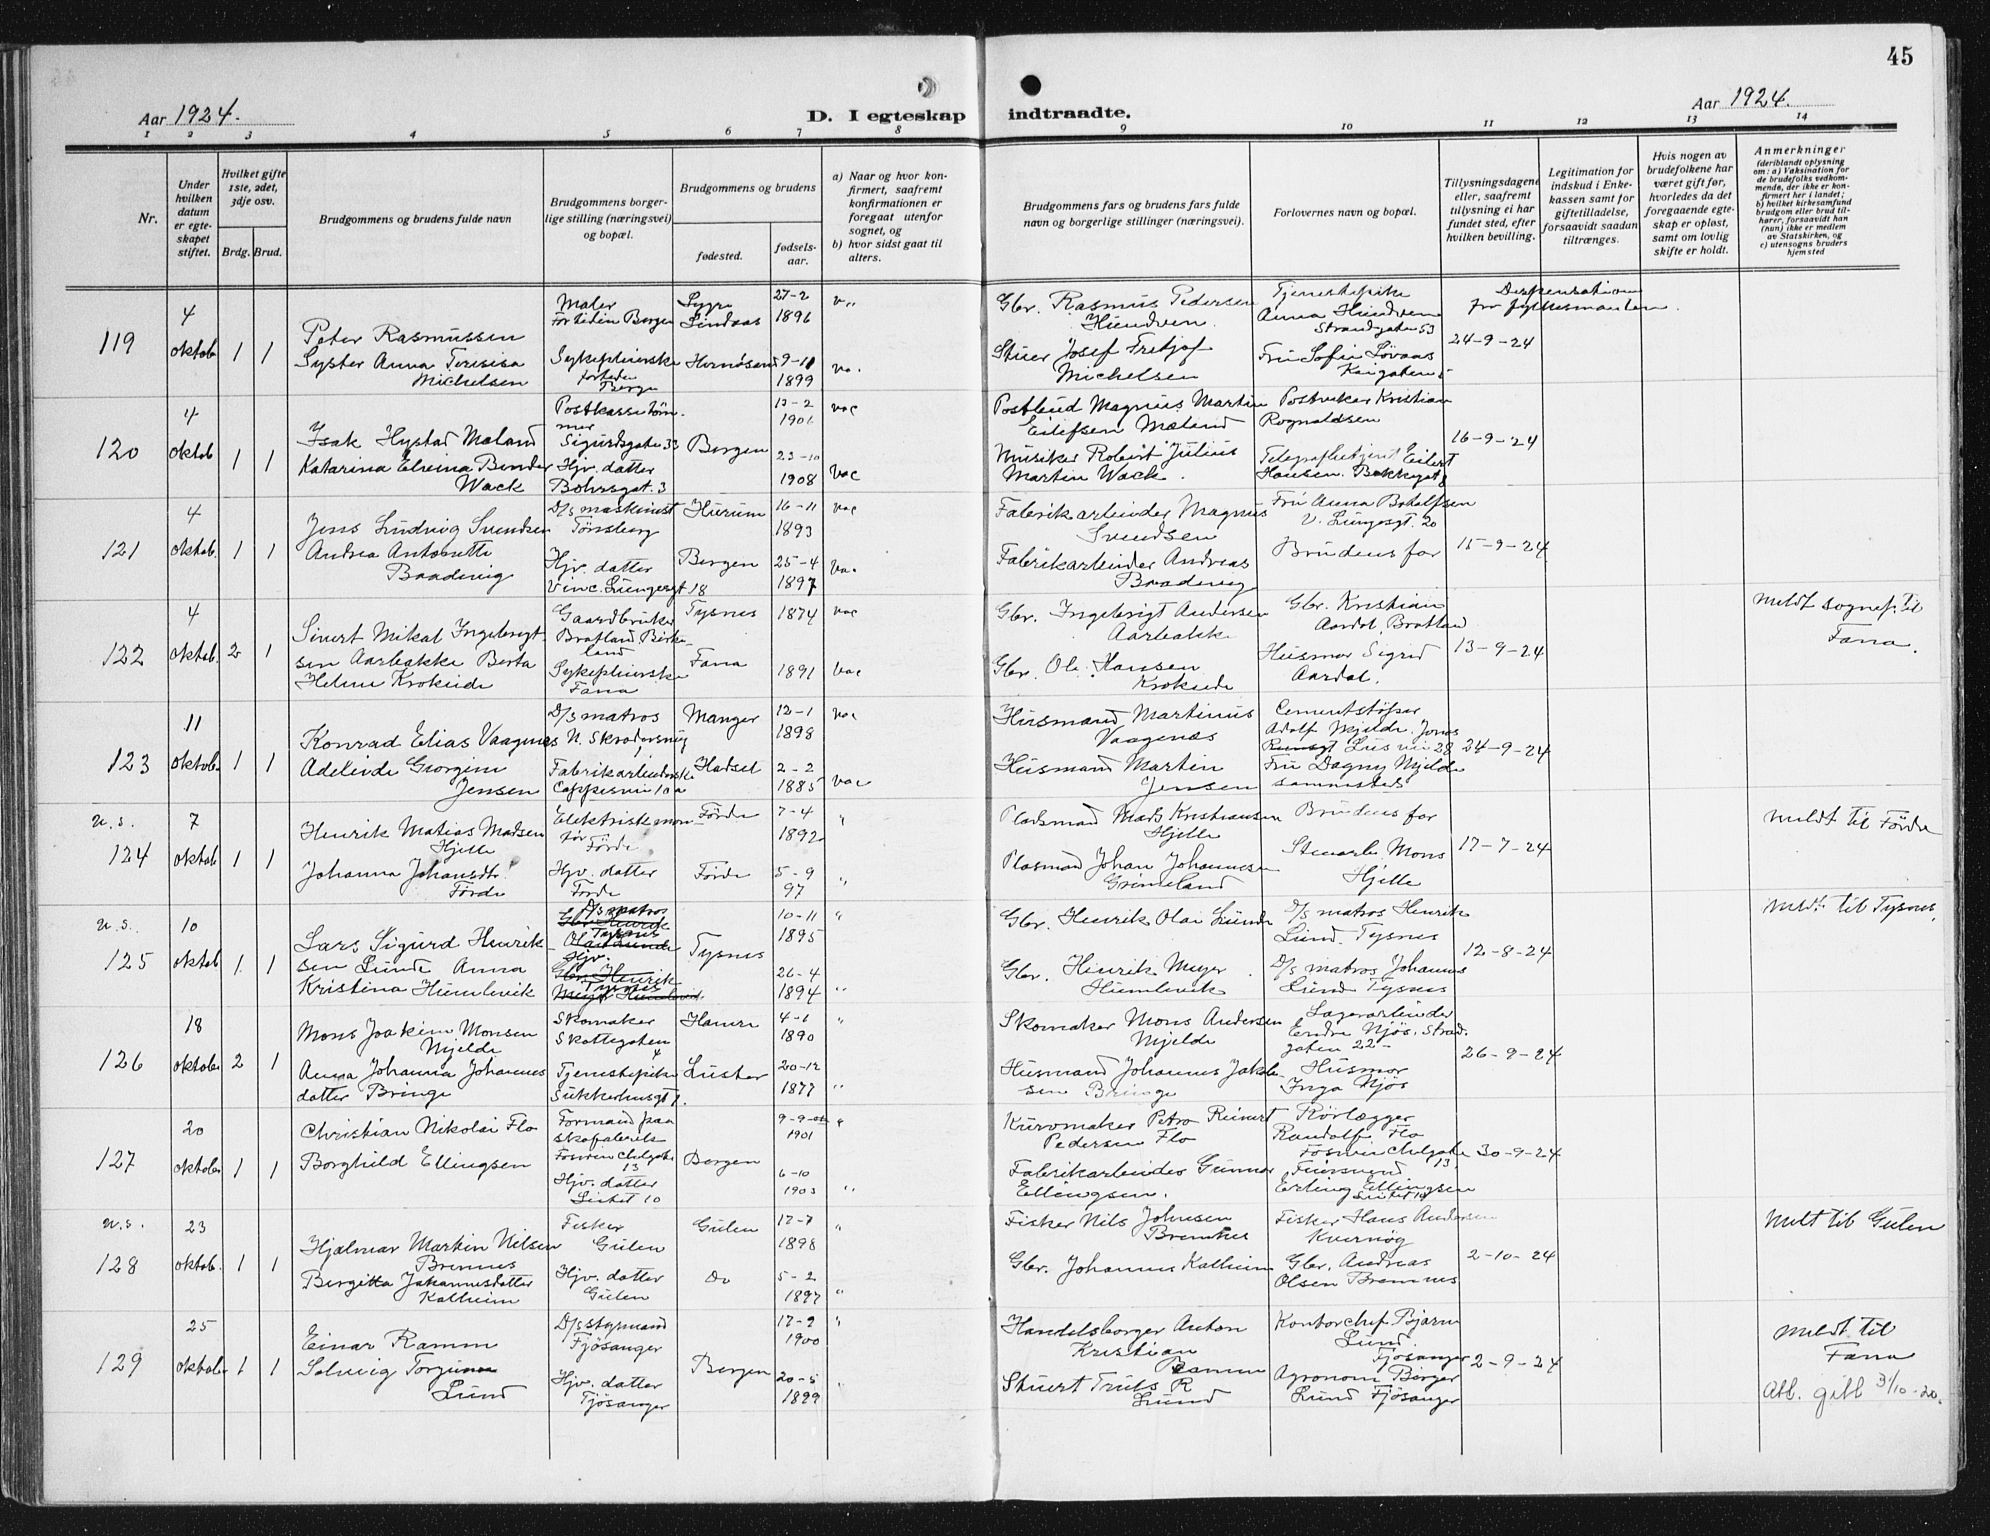 45
Aar 1924.
D. I egteskap indtraadte.
Aar 1924.
1 2 3 4 5 6 7 8 9 10 11 12 13 14
Nr.
Under hvilken datum er egteskapet stiftet.
Hvilket gifte 1ste, 2det, 3dje osv.
Brdg. Brud.
Brudgommens og brudens fulde navn
Brudgommens borgerlige stilling (næringsvei) og bopæl.
Brudgommens og brudens
fødested.
fødselsaar.
a) Naar og hvor konfirmert, saafremt konfirmationen er foregaat utenfor sognet, og
b) hvor sidst gaat til alters.
Brudgommens fars og brudens fars fulde navn og borgerlige stillinger (næringsvei).
Forlovernes navn og bopæl.
Tillysningsdagene eller, saafremt tillysning ei har fundet sted, efter hvilken bevilling.
Legitimation for indskud i Enkekassen samt for giftetilladelse, forsaavidt saadan tiltrænges.
Hvis nogen av brudefolkene har været gift før, hvorledes da det foregaaende egteskap er opløst, samt om lovlig skifte er holdt.
Anmerkninger
(deriblandt oplysning om: a) Vaksination for de brudefolks vedkommende, der ikke er konfirmert her i landet; b) hvilket kirkesamfund brudgom eller brud tilhører, forsaavidt han (hun) ikke er medlem av Statskirken, og c) utensogns bruders hjemsted
119
4 oktob
1 1
Peter Rasmussen
Syster Anna Teresisa
Michelsen
Maler
Bergen
Sykepleierske
Lygre
Lindaas
Hernösand
27-2
1896
9-11
1899
Gbr. Rasmus Pedersen
Hundven
Stuer Josef Fritjof
Michelsen
Tjenestepike
Anna Hundven
Strandgaten 53
Fru Sofie Løvaas
Kaigaten 5
Dispensation
fra fylkesmanden
24-9-24
120
4 oktob
1 1
Isak Hystad Mæland
Katarina Elvina Bender
Wack
Postkassetømmer
Sigurdsgate 33
Hjv. datter
Bohrsgt. 3
Bergen
13-2
1901
23-10
1908
vac
vac
Postbud Magnus Martin
Eilefsen Mæland
Musiker Robert Julius
Martin Wack.
Kristian
Rognaldsen
Telegrafbetjent Eilert
Hansen.
16-9-24
121
4 oktob.
1 1
Jens Ludvig Svendsen
Andrea Antonette
Baadsvig
D/s maskinist
Tønsberg
Hjv. datter
Vinc. Lungesgt 18
Hurum
Bergen
16-11
1893
25-4
1897
vac
vac
Fabrikarbeider Magnus
Svendsen
Fabrikarbeider Andreas
Baadsvig
Fru Anna Botolfsen
V. Lungesgt. 20
Brudens far
15-9-24
122
4 oktob.
2 1
Sivert Mikal Ingebrigtsen Aarbakke Berta
Helene Krokeide
Gaardbruker
Bratland Birkeland
Sykepleierske
Fana
Tysnes
Fana
1874
1891
vac
vac
Gbr. Ingebrigt Andersen
Aarbakke
Gbr. Ole Hansen
Krokeide
Gbr. Kristian
Aardal, Bratland
Husmor Sigrid
Aardal.
13-9-24
meldt sognep. til
Fana.
123
11 oktob.
1 1
Konrad Elias Vaagenes
Adelinde Georgine
Jensen
D/s matros
Fabrikarbeiderske
Manger
Hadsel
12-1
1898
2-2
1885
vac
vac
Husmand Martinus
Vaagenæs
Husmand Martin
Jensen
Cementstøper
Adolf Mjelde, Jonas
Lies vei 28
Fru Dagny Mjelde
sammesteds
24-9-24
u.s.
124
7 oktob
1 1
Henrik Matias Madsen
Hjelle
Johanna Johansdtr.
Førde
Elektrisk montør
Førde
Hjv. datter
Førde
Førde
Førde
7-4
1892
5-9
97
Pladsmand Mads Kristiansen
Hjelle
Plasmand Johan Johannesen
Grimeland
Brudens far
Mons
Hjelle
17-7-24
meldt til Førde
u.s.
125
10 oktob
1 1
Lars Sigurd Henriksen Lunde Anna
Kristina Humlevik
D/s matros
Tysnes
Hjv.
Tysnes
Tysnes
10-11
1895
26-4
1894
Gbr. Henrik Olai Lunde
Gbr. Henrik Meyer
Humlevik
D/s matros Henrik
Lund. Tysnes
D/s matros Johannes
Lund Tysnes
12-8-24
meldt til Tysnes.
126
18 oktober
2 1
Mons Joakim Monsen
Mjelde
Anna Johanna Johannesdatter Bringe
Skomaker
Skottegaten
4
Tjenestepike
Sukkerhusgt 1.
Hamre
Luster
4-6
1890
20-12
1877
Skomaker Mons Andersen
Mjelde
Husmand Johannes Jakobsen Bringe
Lagerarbeider
Endre Njøs. Strandgaten 22
Husmor
Inga Njøs
26-9-24
127
20 oktober
1 1
Christian Nikolai Flo
Borghild Ellingsen
Formand paa
skofabrik
13
Hjv. datter
10
Bergen
9-9
1901
6-10
1903
Kurvmaker Petro Reinert
Pedersen Flo
Fabrikarbeider Gunnar
Ellingsen.
Rørlægger
Randolf Flo
13
Erling Ellingsen
30-9-24
u.s.
128
23 oktob.
1 1
Hjalmar Martin Nilsen
Bremnes
Bergitta Johannesdatter
Kalheim
Fisker
Gulen
Hjv. datter
Gulen
Gulen
Do
17-7
1898
5-2
1897
Fisker Nils Johnsen
Bremnes
Gbr. Johannes Kalheim
Fisker Hans Andersen
Kvernøg
Gbr. Andreas
Olsen Bremnes
2-10-24
meldt til Gulen
129
25 oktober
1 1
Einar Ramm
Solveig Torgunn
Lund
D/s styrmand
Fjøsanger
Hjv. datter
Fjøsanger
Bergen
17-2
1900
20-5
1899
Handelsborger Anton
Kristian
Ramm
Truls R
Lund
Kontorchef Bjarne
Lund
Fjøsanger
Agronom Birger
Lund Fjøsanger
2-9-24
meldt til
Fana
Att. gitt 31/10-20.